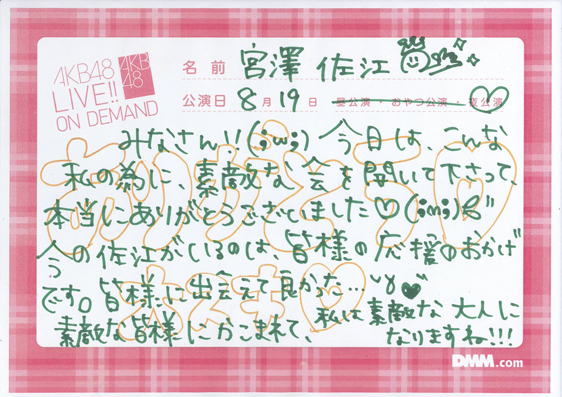 AKB48
LIVE!!
ON DEMAND
AKB
48
名前 宮澤 佐江
公演日 8月19日 昼公演・おやつ公演・夜公演 ♡
みなさん!!(;ω;) 今日は、こんな
私の為に、素敵な会を開いて下さって、
本当にありがとうございました♡(;m;)
今の佐江がいるのは、皆様の応援のおかげ
です。皆様に出会えて良かった…
素敵な皆様にかこまれて、
私は素敵な大人に
なりますね!!!
ありがとう♡
大スキ♡
DMM.com